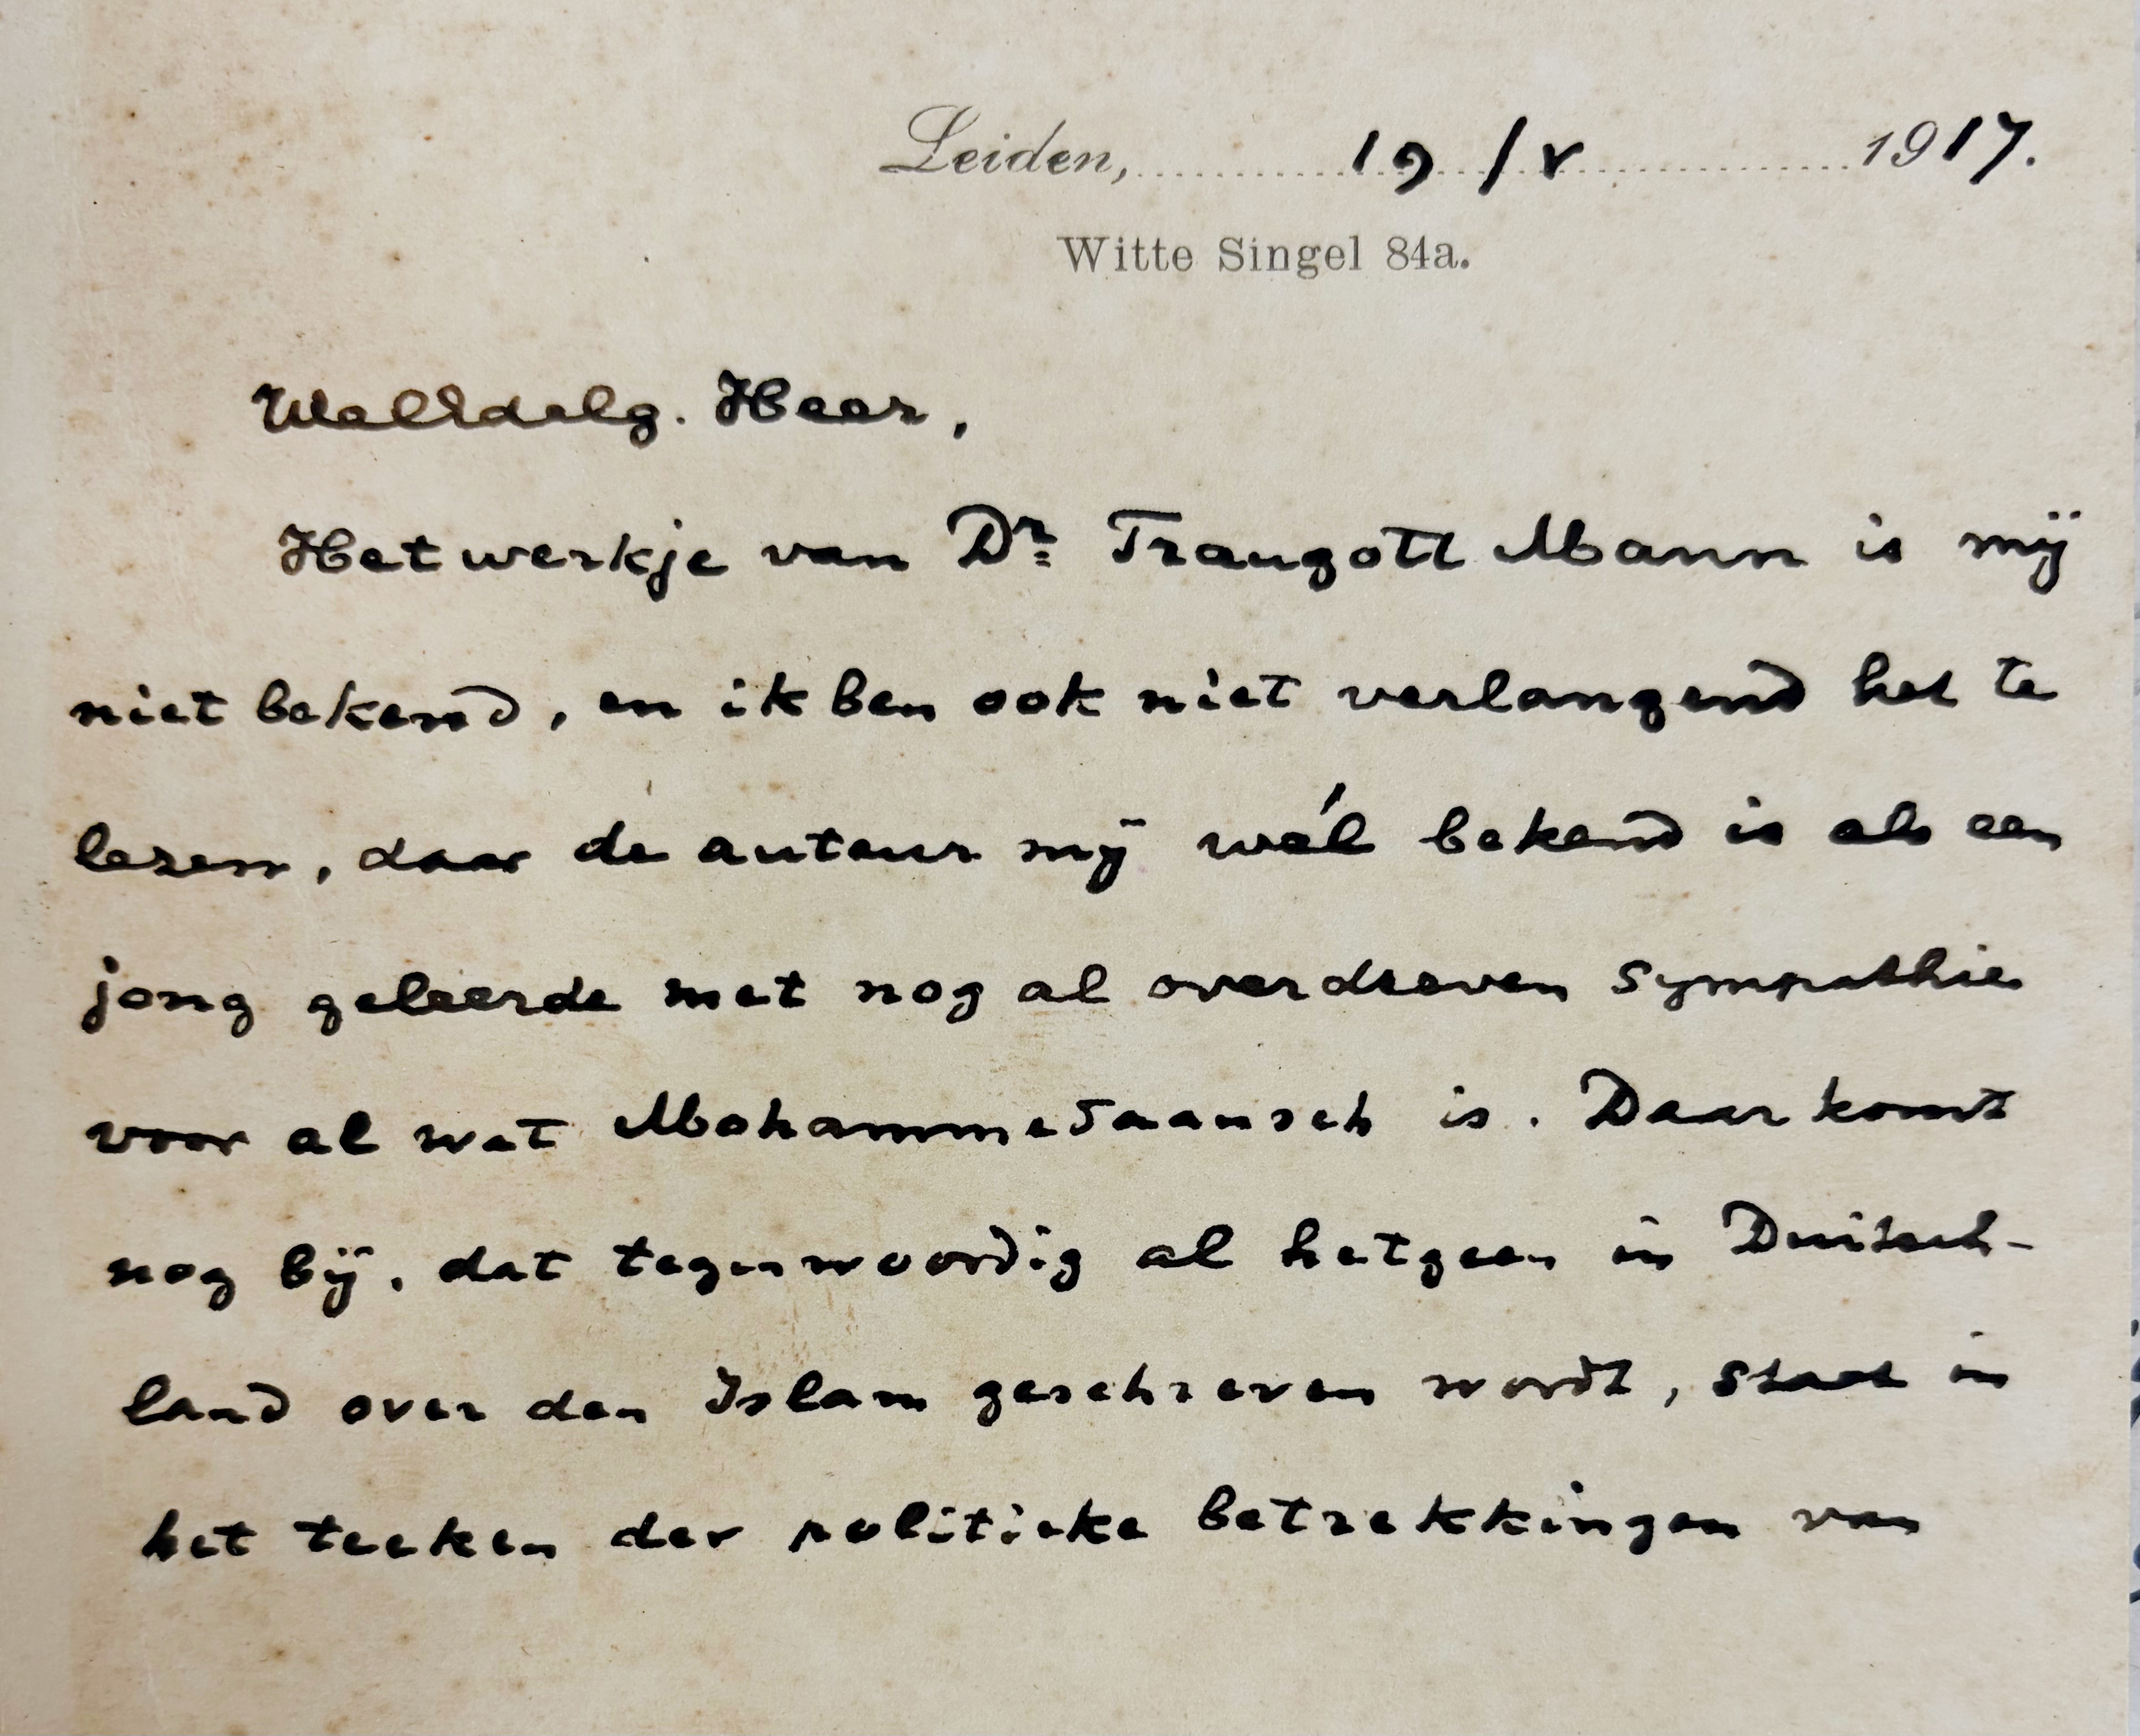 Leiden, 19/V 1917.
Witte Singel 84a.
WelEdelg. Heer,
Het werkje van Dr Traugott Mann is mij
niet bekend, en ik ben ook niet verlangend het te
lezen, daar de auteur mij wél bekend is als een
jong geleerde met nog al overdreven sympathie
voor al wat Mohammedaansch is. Daar komt
nog bij, dat tegenwoordig al hetgeen in Duitsch-
land over den Islam geschreven wordt, staat in
het teeken der politieke betrekkingen van